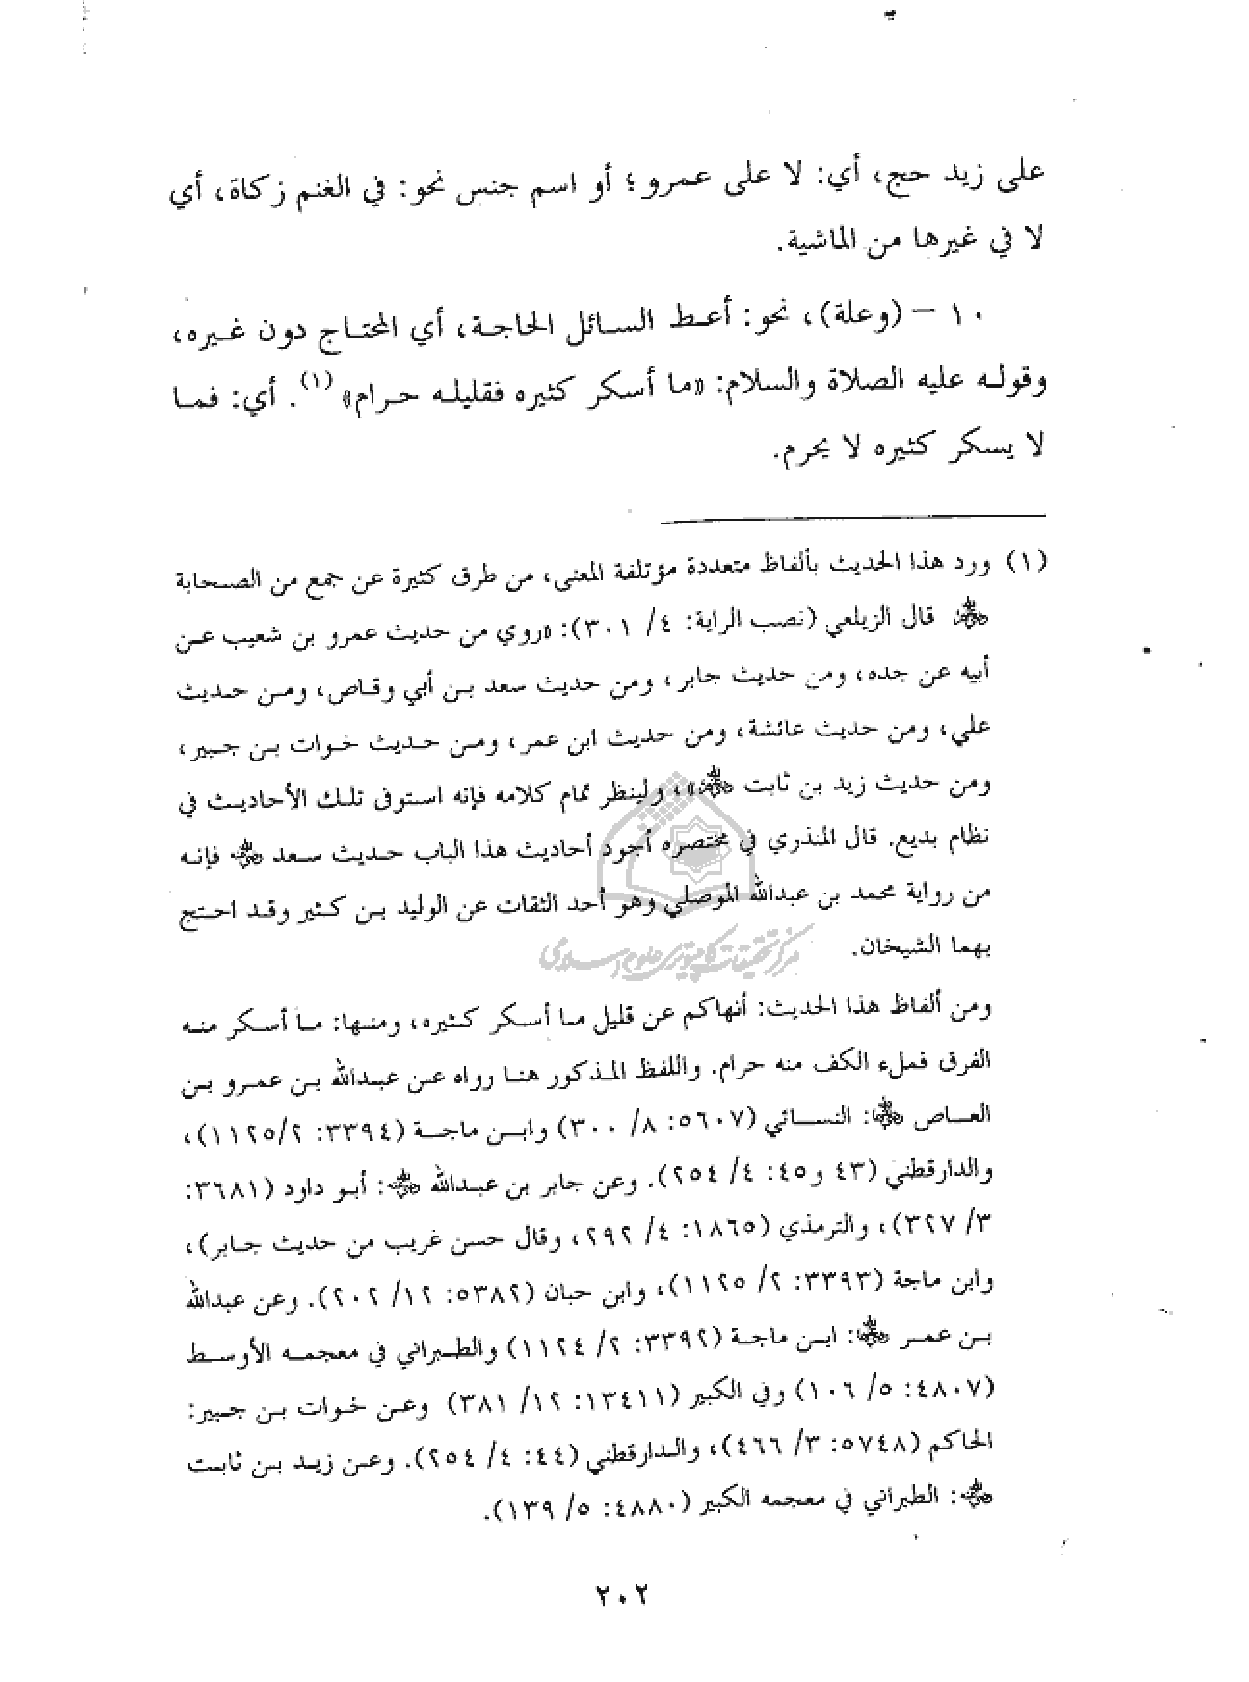 على زيد حج، أي: لا على عمرو؛ أو اسم جنس نحو: في الغنم زكاة، أي
لا في غيرها من الماشية.
١٠ - (وعلة)، نحو: أعط السائل الحاجة، أي المحتاج دون غيره،
وقوله عليه الصلاة والسلام: «ما أسكر كثيره فقليله حرام» (١). أي: فما
لا يسكر كثيره لا يحرم.
(١) ورد هذا الحديث بألفاظ متعددة مؤتلفة المعنى، من طرق كثيرة عن جمع من الصحابة
قال الزيلعي (نصب الراية: ٤/ ٣٠١): «روي من حديث عمرو بن شعيب عن
أبيه عن جده، ومن حديث جابر، ومن حديث سعد بن أبي وقاص، ومن حديث
علي، ومن حديث عائشة، ومن حديث ابن عمر، ومن حديث خوات بن جبير،
ومن حديث زيد بن ثابت ﷺ»، ولينظر تمام كلامه فإنه استوفى تلك الأحاديث في
نظام بديع. قال المنذري في مختصره أجود أحاديث هذا الباب حديث سعد فإنه
من رواية محمد بن عبدالله الموصلي وهو أحد الثقات عن الوليد بن كثير وقد احتج
بهما الشيخان.
مركز تحقيقات كامپيوتری علوم اسلامی
ومن ألفاظ هذا الحديث: أنهاكم عن قليل ما أسكر كثيره، ومنها: ما أسكر منه
الفرق فملء الكف منه حرام. واللفظ المذكور هنا رواه عن عبدالله بن عمرو بن
العاص: النسائي (٥٦٠٧: ٨/ ٣٠٠) وابن ماجة (٣٣٩٤: ١١٢٥/٢)،
والدارقطني (٤٣ و٤٥: ٤/ ٢٥٤). وعن جابر بن عبدالله: أبو داود (٣٦٨١:
٣/ ٣٢٧)، والترمذي (١٨٦٥: ٤/ ٢٩٢، وقال حسن غريب من حديث جابر)،
وابن ماجة (٣٣٩٣: ٢/ ١١٢٥)، وابن حبان (٥٣٨٢: ١٢/ ٢٠٢). وعن عبدالله
بن عمر: ابن ماجة (٣٣٩٢: ٢/ ١١٢٤) والطبراني في معجمه الأوسط
(٤٨٠٧: ٥/ ١٠٦) وفي الكبير (١٣٤١١: ١٢/ ٣٨١) وعن خوات بن جبير:
الحاكم (٥٧٤٨: ٣/ ٤٦٦)، والدارقطني (٤٤: ٤/ ٢٥٤). وعن زيد بن ثابت
: الطبراني في معجمه الكبير (٤٨٨٠: ٥/ ١٣٩).
٢٠٢